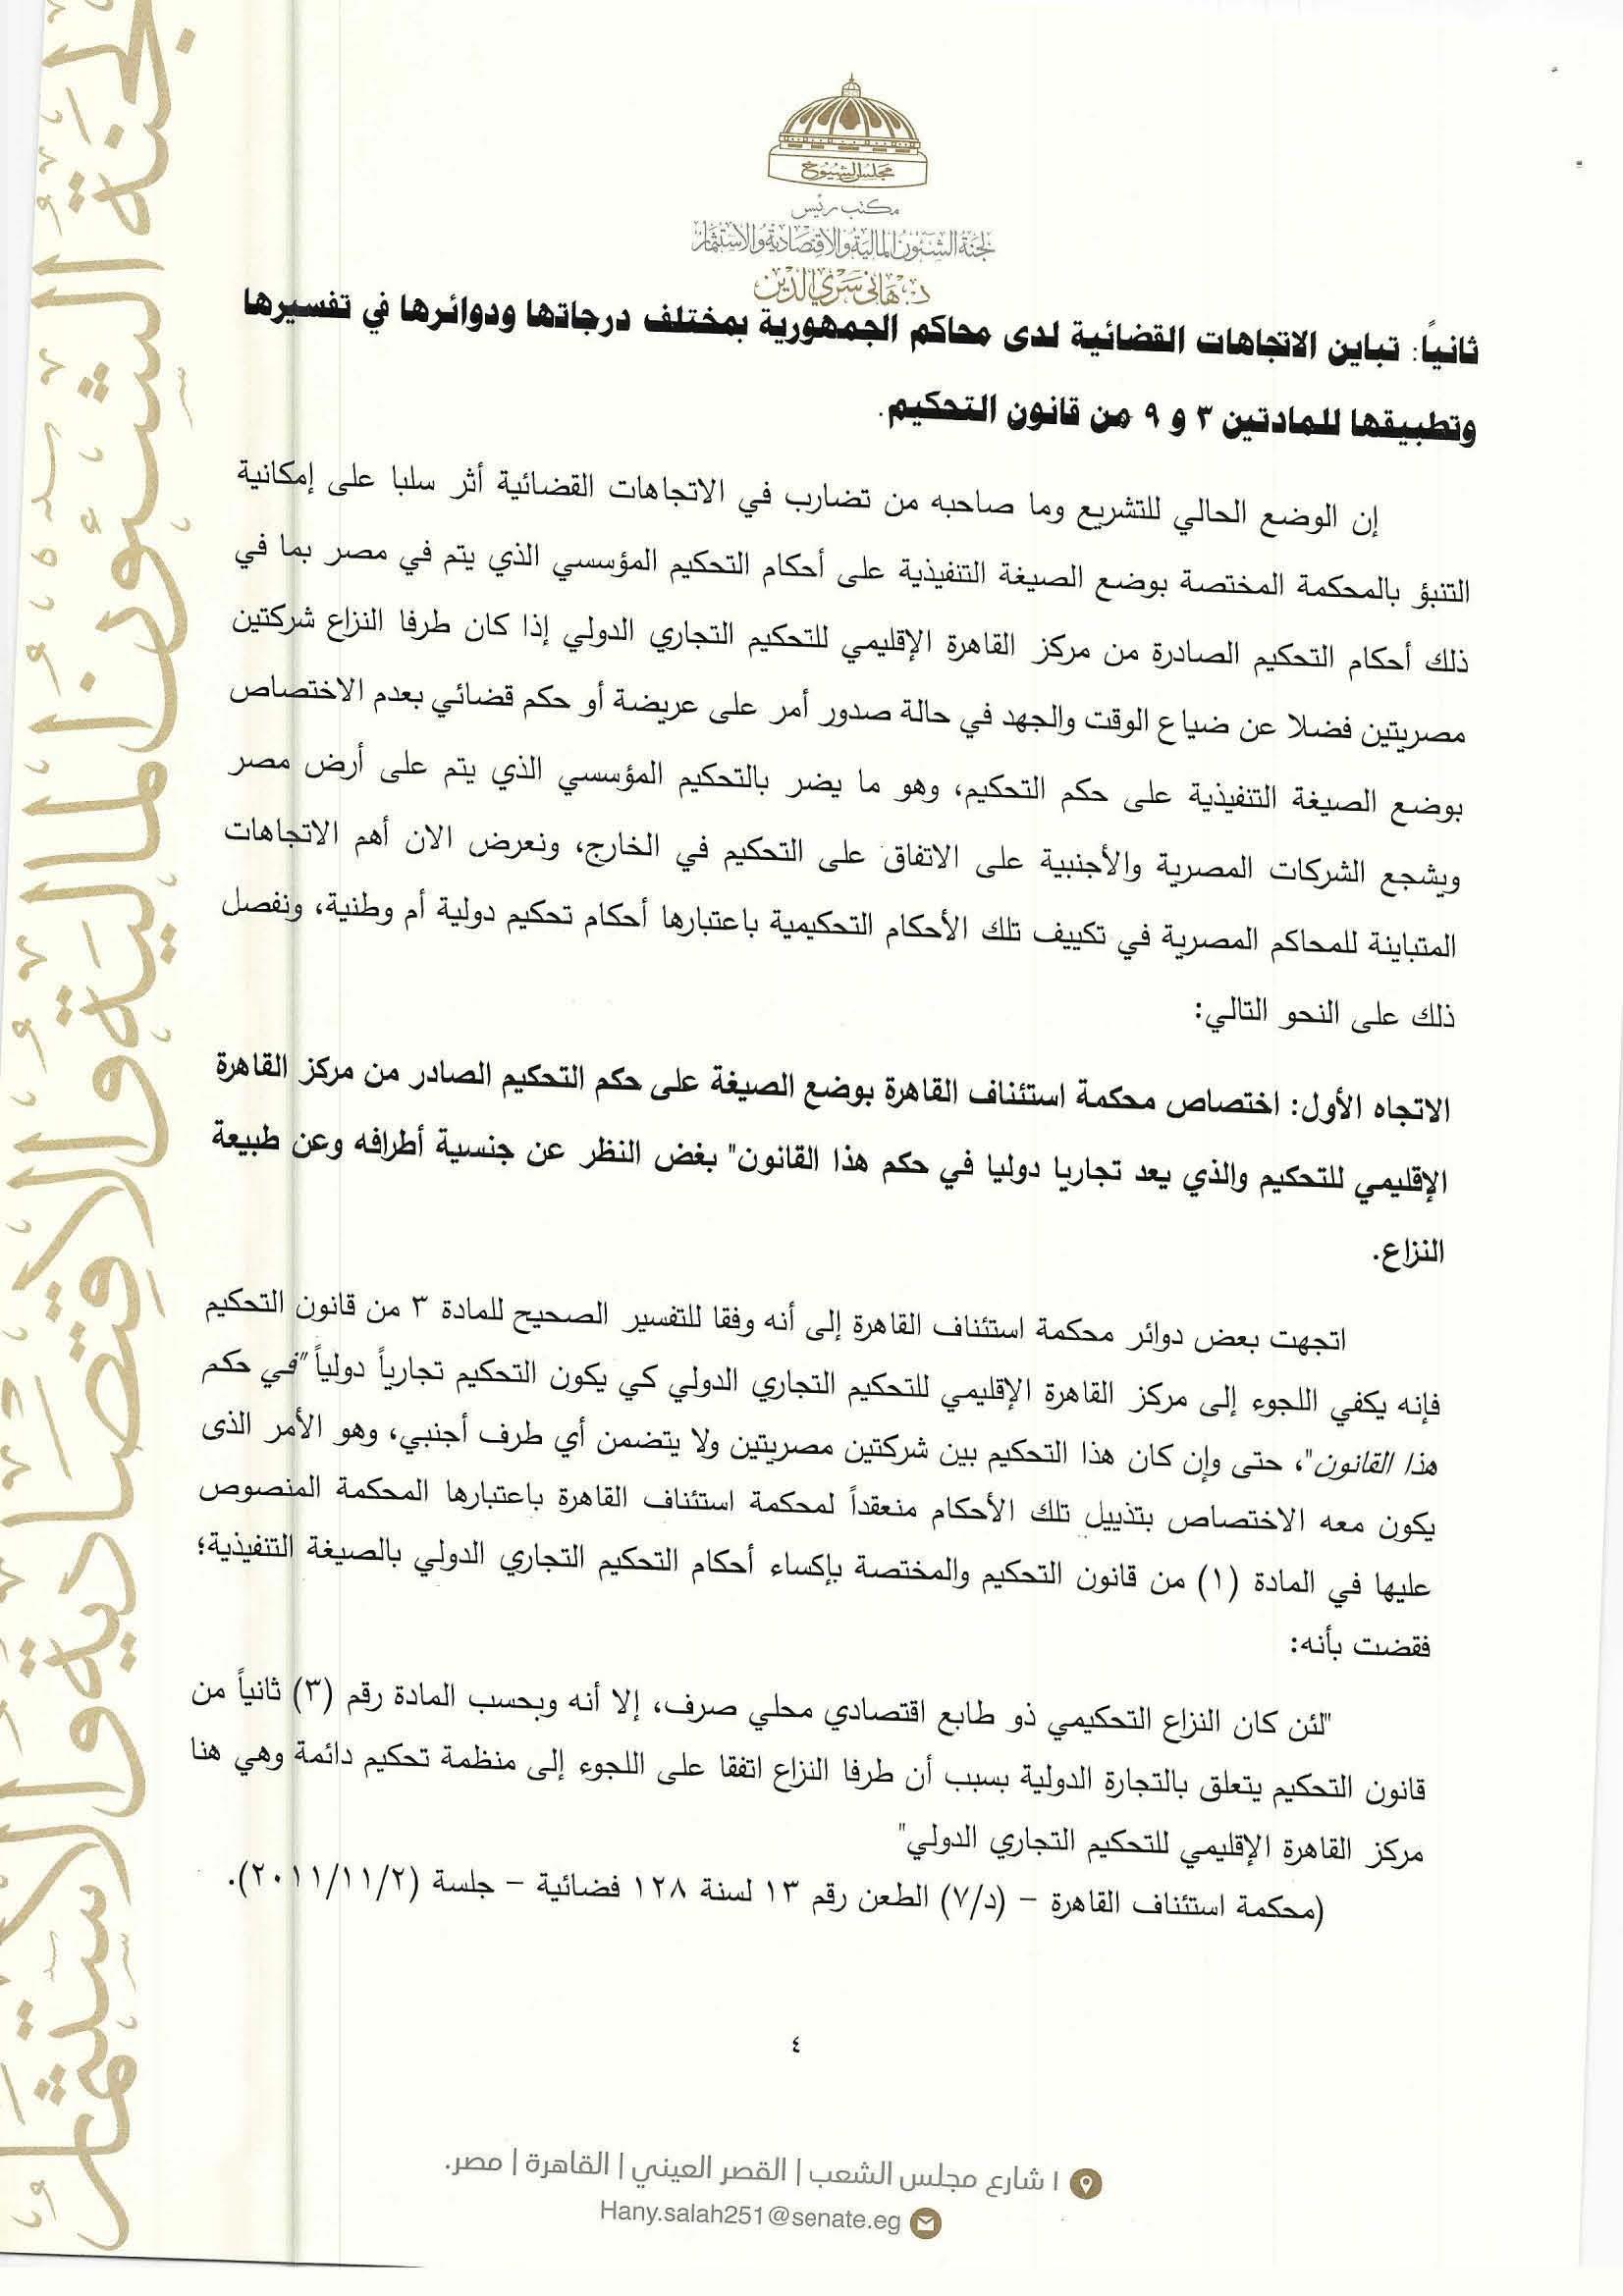 مجلس الشيوخ
مكتب رئيس
لجنة الشئون المالية والاقتصادية والاستثمار
د. هاني سري الدين
ثانياً: تباين الاتجاهات القضائية لدى محاكم الجمهورية بمختلف درجاتها ودوائرها في تفسيرها
وتطبيقها للمادتين ٣ و ٩ من قانون التحكيم.
إن الوضع الحالي للتشريع وما صاحبه من تضارب في الاتجاهات القضائية أثر سلبا على إمكانية
التنبؤ بالمحكمة المختصة بوضع الصيغة التنفيذية على أحكام التحكيم المؤسسي الذي يتم في مصر بما في
ذلك أحكام التحكيم الصادرة من مركز القاهرة الإقليمي للتحكيم التجاري الدولي إذا كان طرفا النزاع شركتين
مصريتين فضلا عن ضياع الوقت والجهد في حالة صدور أمر على عريضة أو حكم قضائي بعدم الاختصاص
بوضع الصيغة التنفيذية على حكم التحكيم، وهو ما يضر بالتحكيم المؤسسي الذي يتم على أرض مصر
ويشجع الشركات المصرية والأجنبية على الاتفاق على التحكيم في الخارج، ونعرض الان أهم الاتجاهات
المتباينة للمحاكم المصرية في تكييف تلك الأحكام التحكيمية باعتبارها أحكام تحكيم دولية أم وطنية، ونفصل
ذلك على النحو التالي:
الاتجاه الأول: اختصاص محكمة استئناف القاهرة بوضع الصيغة على حكم التحكيم الصادر من مركز القاهرة
الإقليمي للتحكيم والذي يعد تجاريا دوليا في حكم هذا القانون" بغض النظر عن جنسية أطرافه وعن طبيعة
النزاع.
اتجهت بعض دوائر محكمة استئناف القاهرة إلى أنه وفقا للتفسير الصحيح للمادة ٣ من قانون التحكيم
فإنه يكفي اللجوء إلى مركز القاهرة الإقليمي للتحكيم التجاري الدولي كي يكون التحكيم تجارياً دولياً "في حكم
هذا القانون"، حتى وإن كان هذا التحكيم بين شركتين مصريتين ولا يتضمن أي طرف أجنبي، وهو الأمر الذى
يكون معه الاختصاص بتذييل تلك الأحكام منعقداً لمحكمة استئناف القاهرة باعتبارها المحكمة المنصوص
عليها في المادة (١) من قانون التحكيم والمختصة بإكساء أحكام التحكيم التجاري الدولي بالصيغة التنفيذية؛
فقضت بأنه:
"لئن كان النزاع التحكيمي ذو طابع اقتصادي محلي صرف، إلا أنه وبحسب المادة رقم (٣) ثانياً من
قانون التحكيم يتعلق بالتجارة الدولية بسبب أن طرفا النزاع اتفقا على اللجوء إلى منظمة تحكيم دائمة وهي هنا
مركز القاهرة الإقليمي للتحكيم التجاري الدولي"
(محكمة استئناف القاهرة – (د/٧) الطعن رقم ١٣ لسنة ١٢٨ فضائية – جلسة (٢٠١١/١١/٢).
٤
١ شارع مجلس الشعب | القصر العيني | القاهرة | مصر.
Hany.salah251@senate.eg
لجنة الشئون المالية والاقتصادية والاستثمار